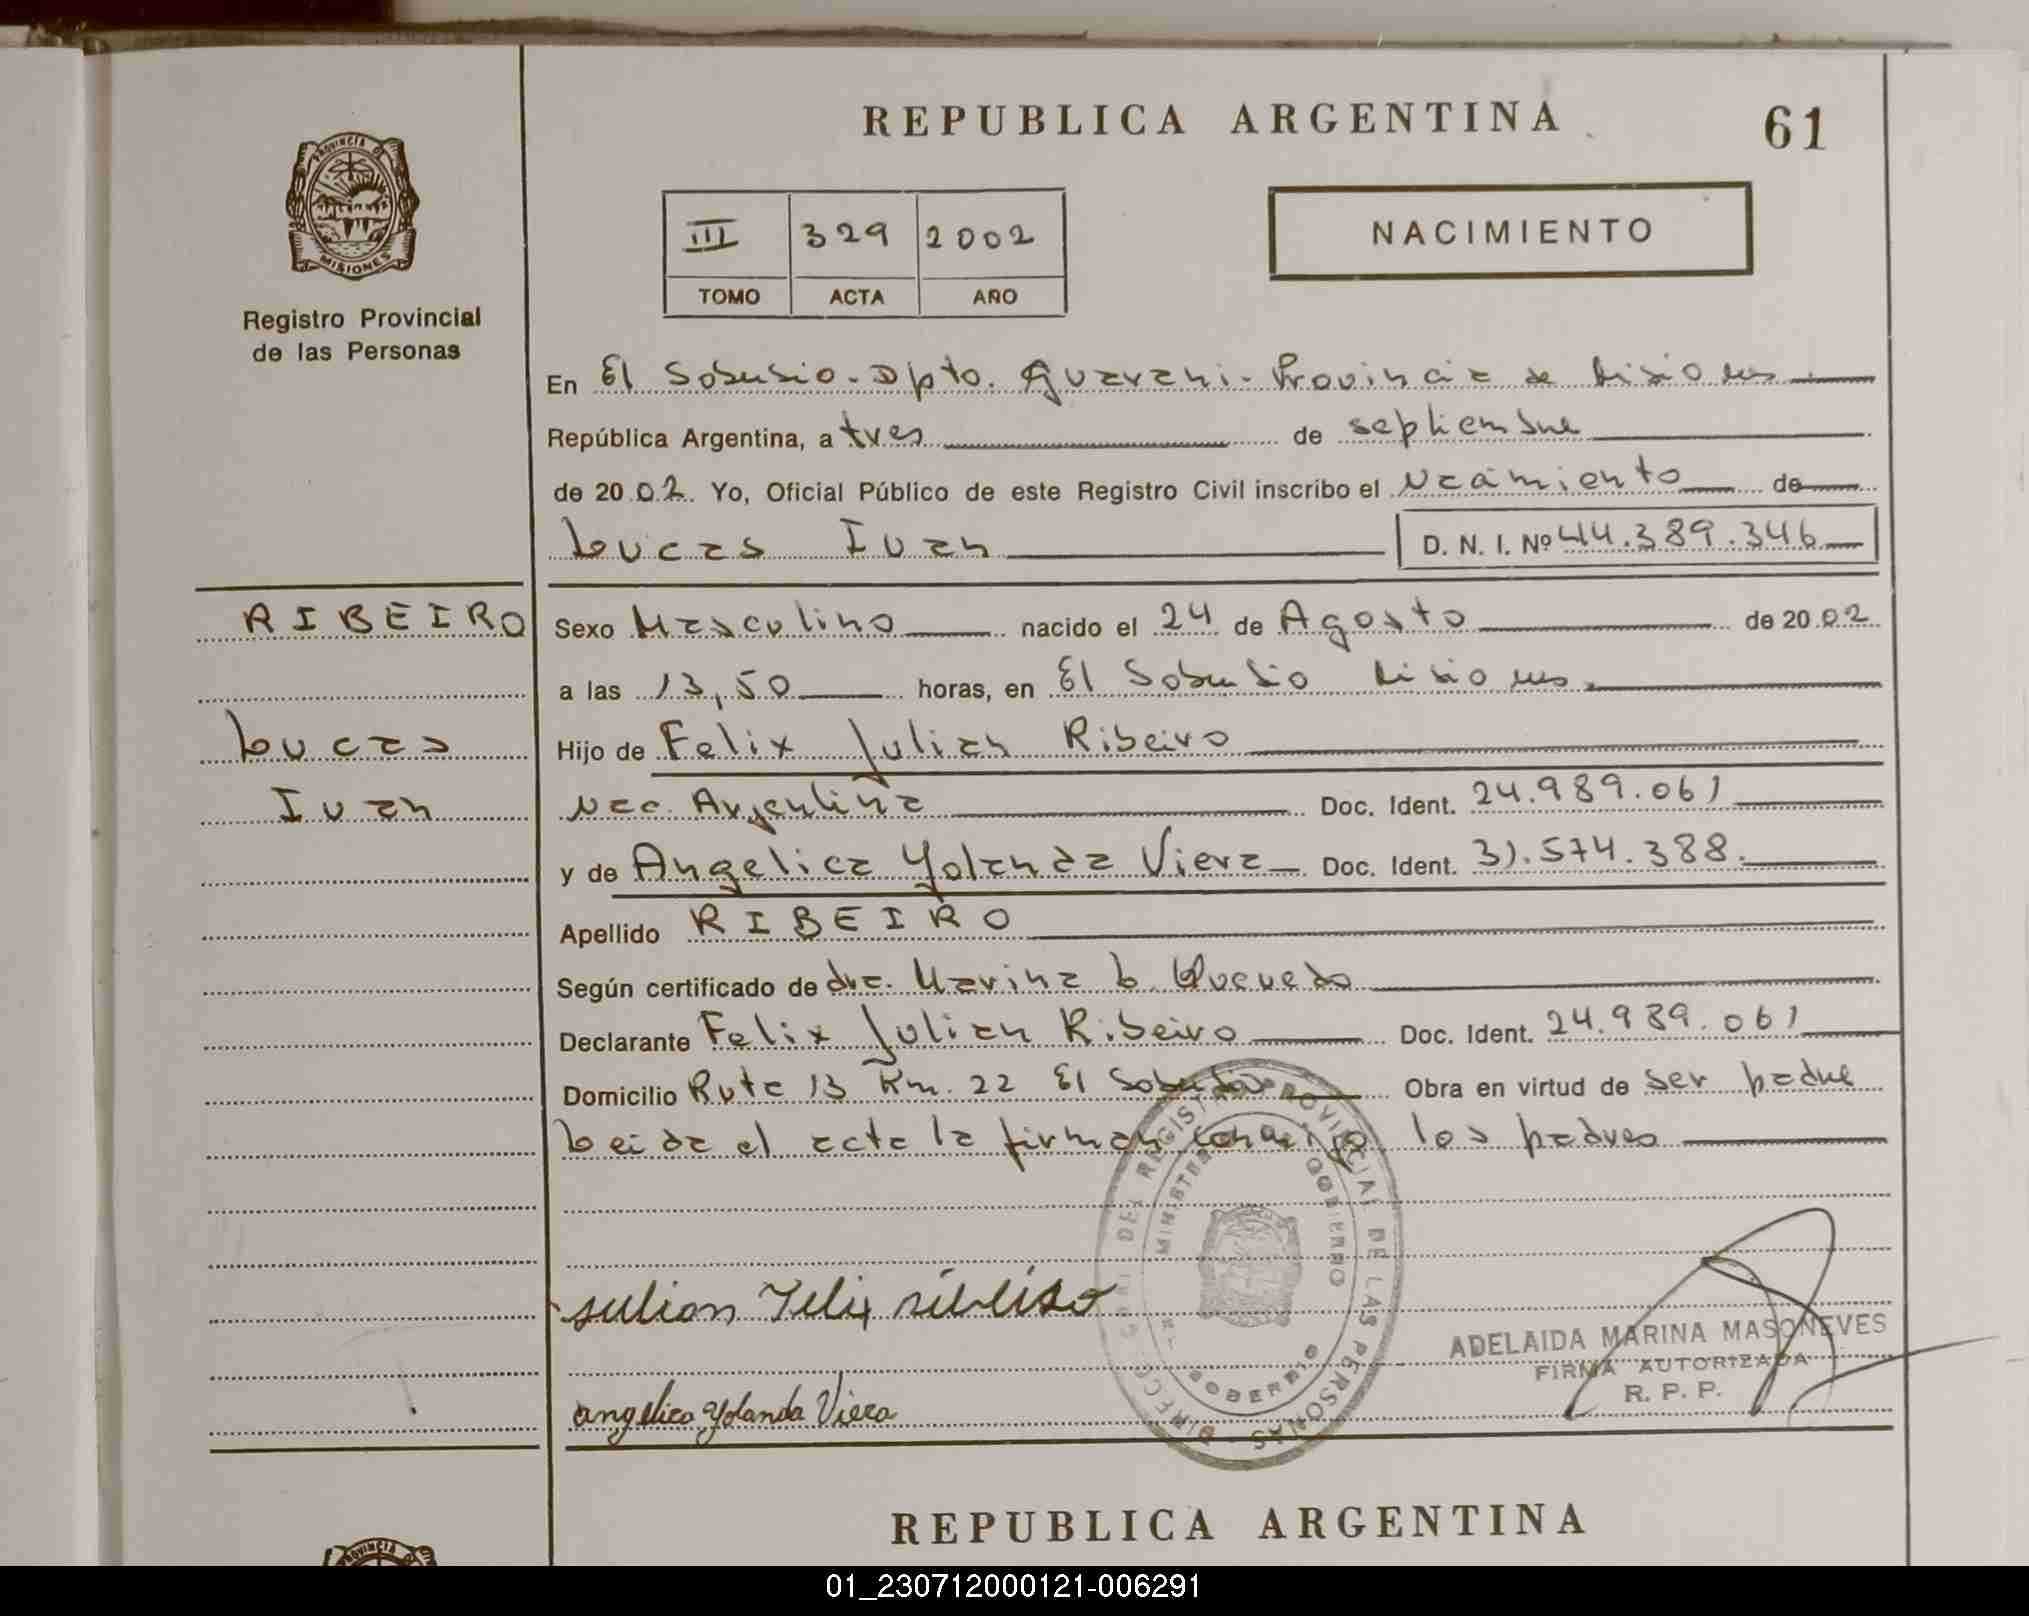 REPUBLICA ARGENTINA
61
PROVINCIA DE
MISIONES
Registro Provincial
de las Personas
III 329 2002
TOMO ACTA AÑO
NACIMIENTO
En El Soberbio - Dpto. Guarani - Provincia de Misiones
República Argentina, a tres de septiembre
de 2002. Yo, Oficial Público de este Registro Civil inscribo el Nacimiento de
Lucas Ivan D. N. I. Nº 44.389.346
RIBEIRO
Lucas
Ivan
Sexo Masculino nacido el 24 de Agosto de 2002
a las 13,50 horas, en El Soberbio Misiones.
Hijo de Felix Julian Ribeiro
Nac. Argentina Doc. Ident. 24.989.061
y de Angelica Yolanda Viera Doc. Ident. 31.574.388.
Apellido RIBEIRO
Según certificado de dra. Marina L. Quevedo
Declarante Felix Julian Ribeiro Doc. Ident. 24.989.061
Domicilio Ruta 13 Km. 22 El Soberbio Obra en virtud de ser padre
Leida el acta la firman conmigo los padres
DIRECC GRAL DEL REGISTRO PROVINCIAL DE LAS PERSONAS
MINISTERIO GOBIERNO
julian Felix ribeiro
ADELAIDA MARINA MASONEVES
FIRMA AUTORIZADA
R. P. P.
angelica Yolanda Viera
REPUBLICA ARGENTINA
PROVINCIA DE
01_230712000121-006291